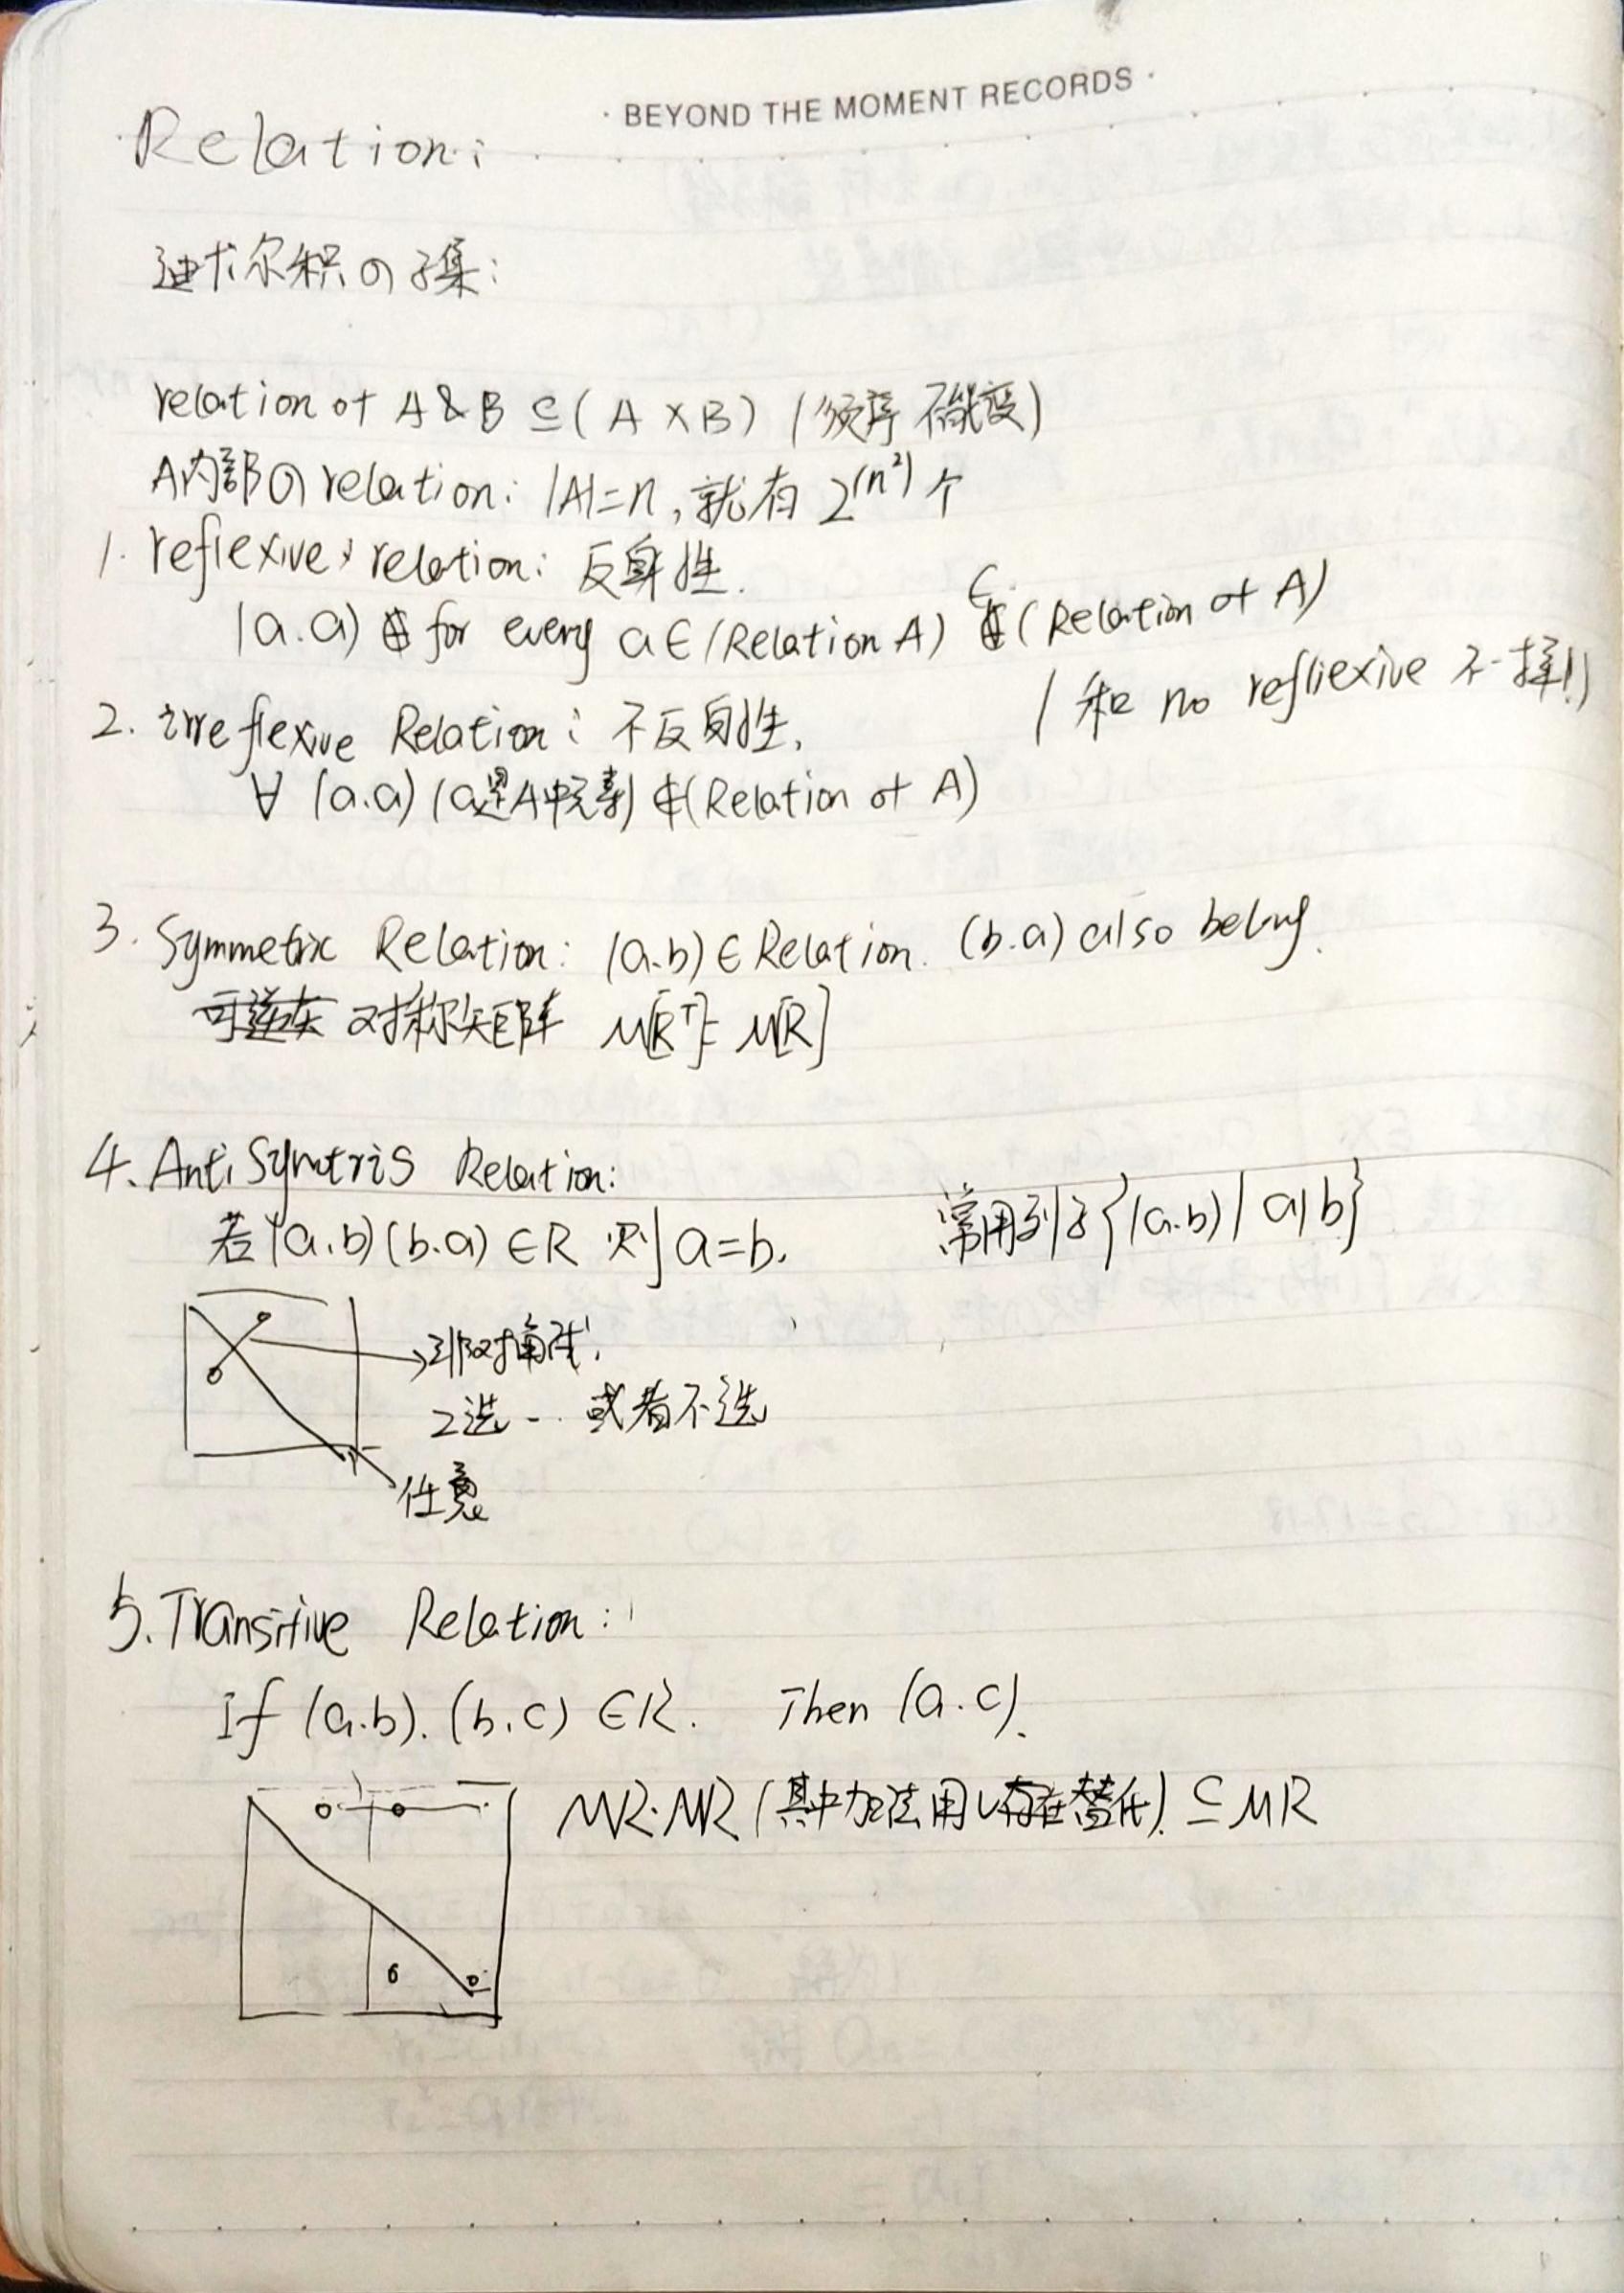 · BEYOND THE MOMENT RECORDS ·
Relation:
迪卡尔积の子集:
relation of A & B ⊆ (A × B) (顺序不能变)
A内部の relation: |A|=n, 就有 2^(n²) 个
1. reflexive relation: 反身性.
(a.a) for every a∈(Relation A) ∈ (Relation of A)
2. irreflexive Relation: 不反身性,
(和 no refliexive 不一样!)
∀ (a.a) (a是A中元素) ∉ (Relation of A)
3. Symmetric Relation: (a.b) ∈ Relation. (b.a) also belong.
对称矩阵 M[R^T] = M[R]
4. Anti Symetris Relation:
若 (a.b) (b.a) ∈ R 则 a=b.
常用列子 {(a.b) | a|b}
→ 非对角线!
2选一 或者不选
任意
5. Transitive Relation:
If (a.b). (b.c) ∈ R. Then (a.c).
MR·MR (其中加法用∨存在替代) ⊆ MR